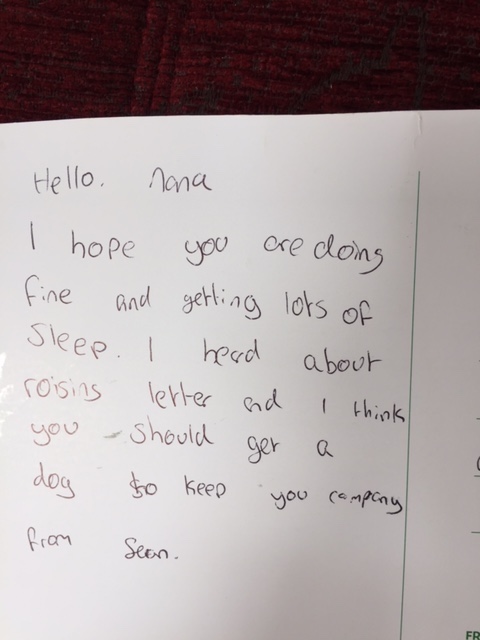 Hello. Nana
I hope you are doing
fine and getting lots of
Sleep. I heard about
roisins letter and I think
you should get a
dog to keep you company
from Sean.
FR